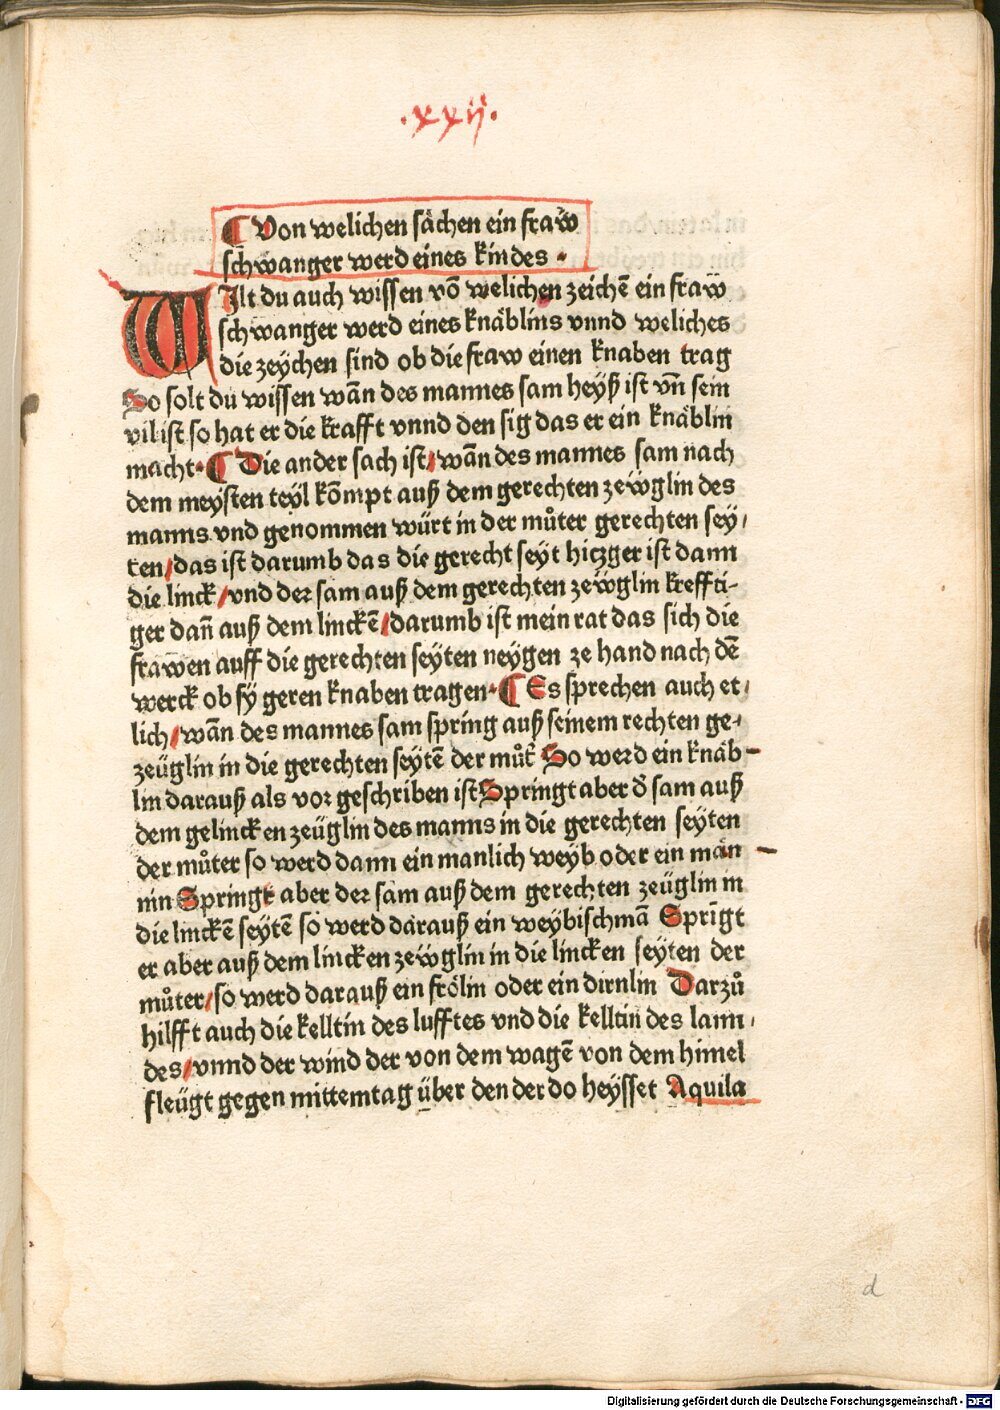 .xxij.
¶ Von welichen sächen ein fraẅ
schwanger werd eines kindes.
WIlt du auch wissen võ welichen zeichẽ ein fraw
schwanger werd eines knäblins vnnd weliches
die zeÿchen sind ob die fraw einen knaben trag
So solt du wissen wañ des mannes sam heÿß ist vñ sein
vil ist so hat er die krafft vnnd den sig das er ein knäblin
macht. ¶ Die ander sach ist/wañ des mannes sam nach
dem meÿsten teÿl kõmpt auß dem gerechten zeẅglin des
manns vnd genommen würt in der můter gerechten seÿ/
ten/das ist darumb das die gerecht seÿt hiczger ist dann
die linck/vnd der sam auß dem gerechten zeẅglin kreffti-
ger dañ auß dem linckẽ/darumb ist mein rat das sich die
frawen auff die gerechten seÿten neÿgen ze hand nach dẽ
werck ob sÿ geren knaben tragen. ¶ Es sprechen auch et/
lich/wañ des mannes sam spring auß seinem rechten ge/
zeüglin in die gerechten seÿtẽ der můt̃ So werd ein knäb-
lin darauß als vor geschriben ist Springt aber d̕ sam auß
dem gelincken zeüglin des manns in die gerechten seÿten
der můter so werd dann ein manlich weÿb oder ein män-
nin Springt aber der sam auß dem gerechten zeüglin in
die linckẽ seÿtẽ so werd darauß ein weÿbisch mã Sprĩgt
er aber auß dem lincken zeẅglin in die lincken seÿten der
můter/so werd darauß ein frölin oder ein dirnlin Darzů
hilfft auch die kelltin des lufftes vnd die kelltin des lann/
des/vnnd der wind der von dem wagẽ von dem himel
fleügt gegen mittemtag über den der do heÿsset Aquila
d
Digitalisierung gefördert durch die Deutsche Forschungsgemeinschaft - DFG